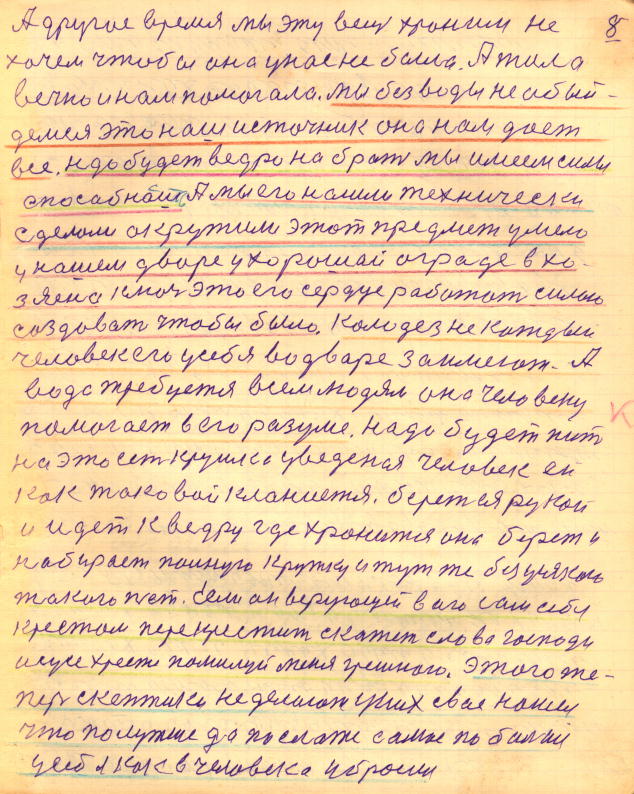 8
А другое время мы эту вещ храним не
хочем чтобы она у нас не была. А жила
вечно и нам помогала. Мы без воды не абый-
демся это наш источник она нам дает
все. Ндо будет ведро набрать мы имеем силы
способнаст. А мы его нашли технически
сделали акружили этот предмет умело
у нашем дворе у хорошай аграде в хо-
зяена ключ это его сердце работат силаю
создоват чтобы было. Колодез не каждый
человек его у себя во дваре заимеют. А
вода требуется всем людям она человеку
помогает в его разуме. Надо будет пит
на это ест кружка уведеная человек ей
как таковой кланиется. берется рукой
и идет к ведру где хронится она берет и
набирает полную кружку и тут же без унякого
такого пет. Если он верующей в аго сам себя
крестом перекрестит скажет слова господи
исусе христе помилуй меня грешного. Этого те-
пер скептики не делают у них свае нашли
что получше да послаже самое по балий
у себя как в человека и бросии